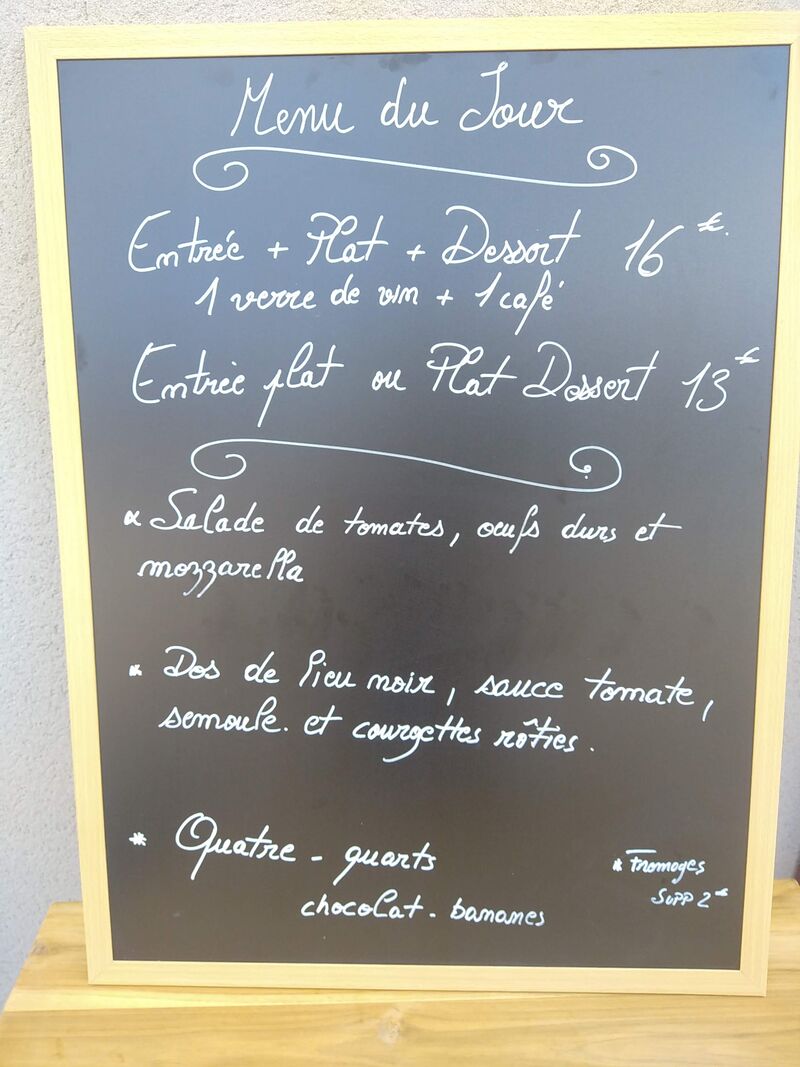 Menu du Jour
Entrée + Plat + Dessert 16€.
1 verre de vin + 1 café
Entrée plat ou Plat Dessert 13€
* Salade de tomates, oeufs durs et
mozzarella
* Dos de lieu noir, sauce tomate,
semoule. et courgettes rôties.
* Quatre - quarts
chocolat - bananes
* Fromages
Supp 2€